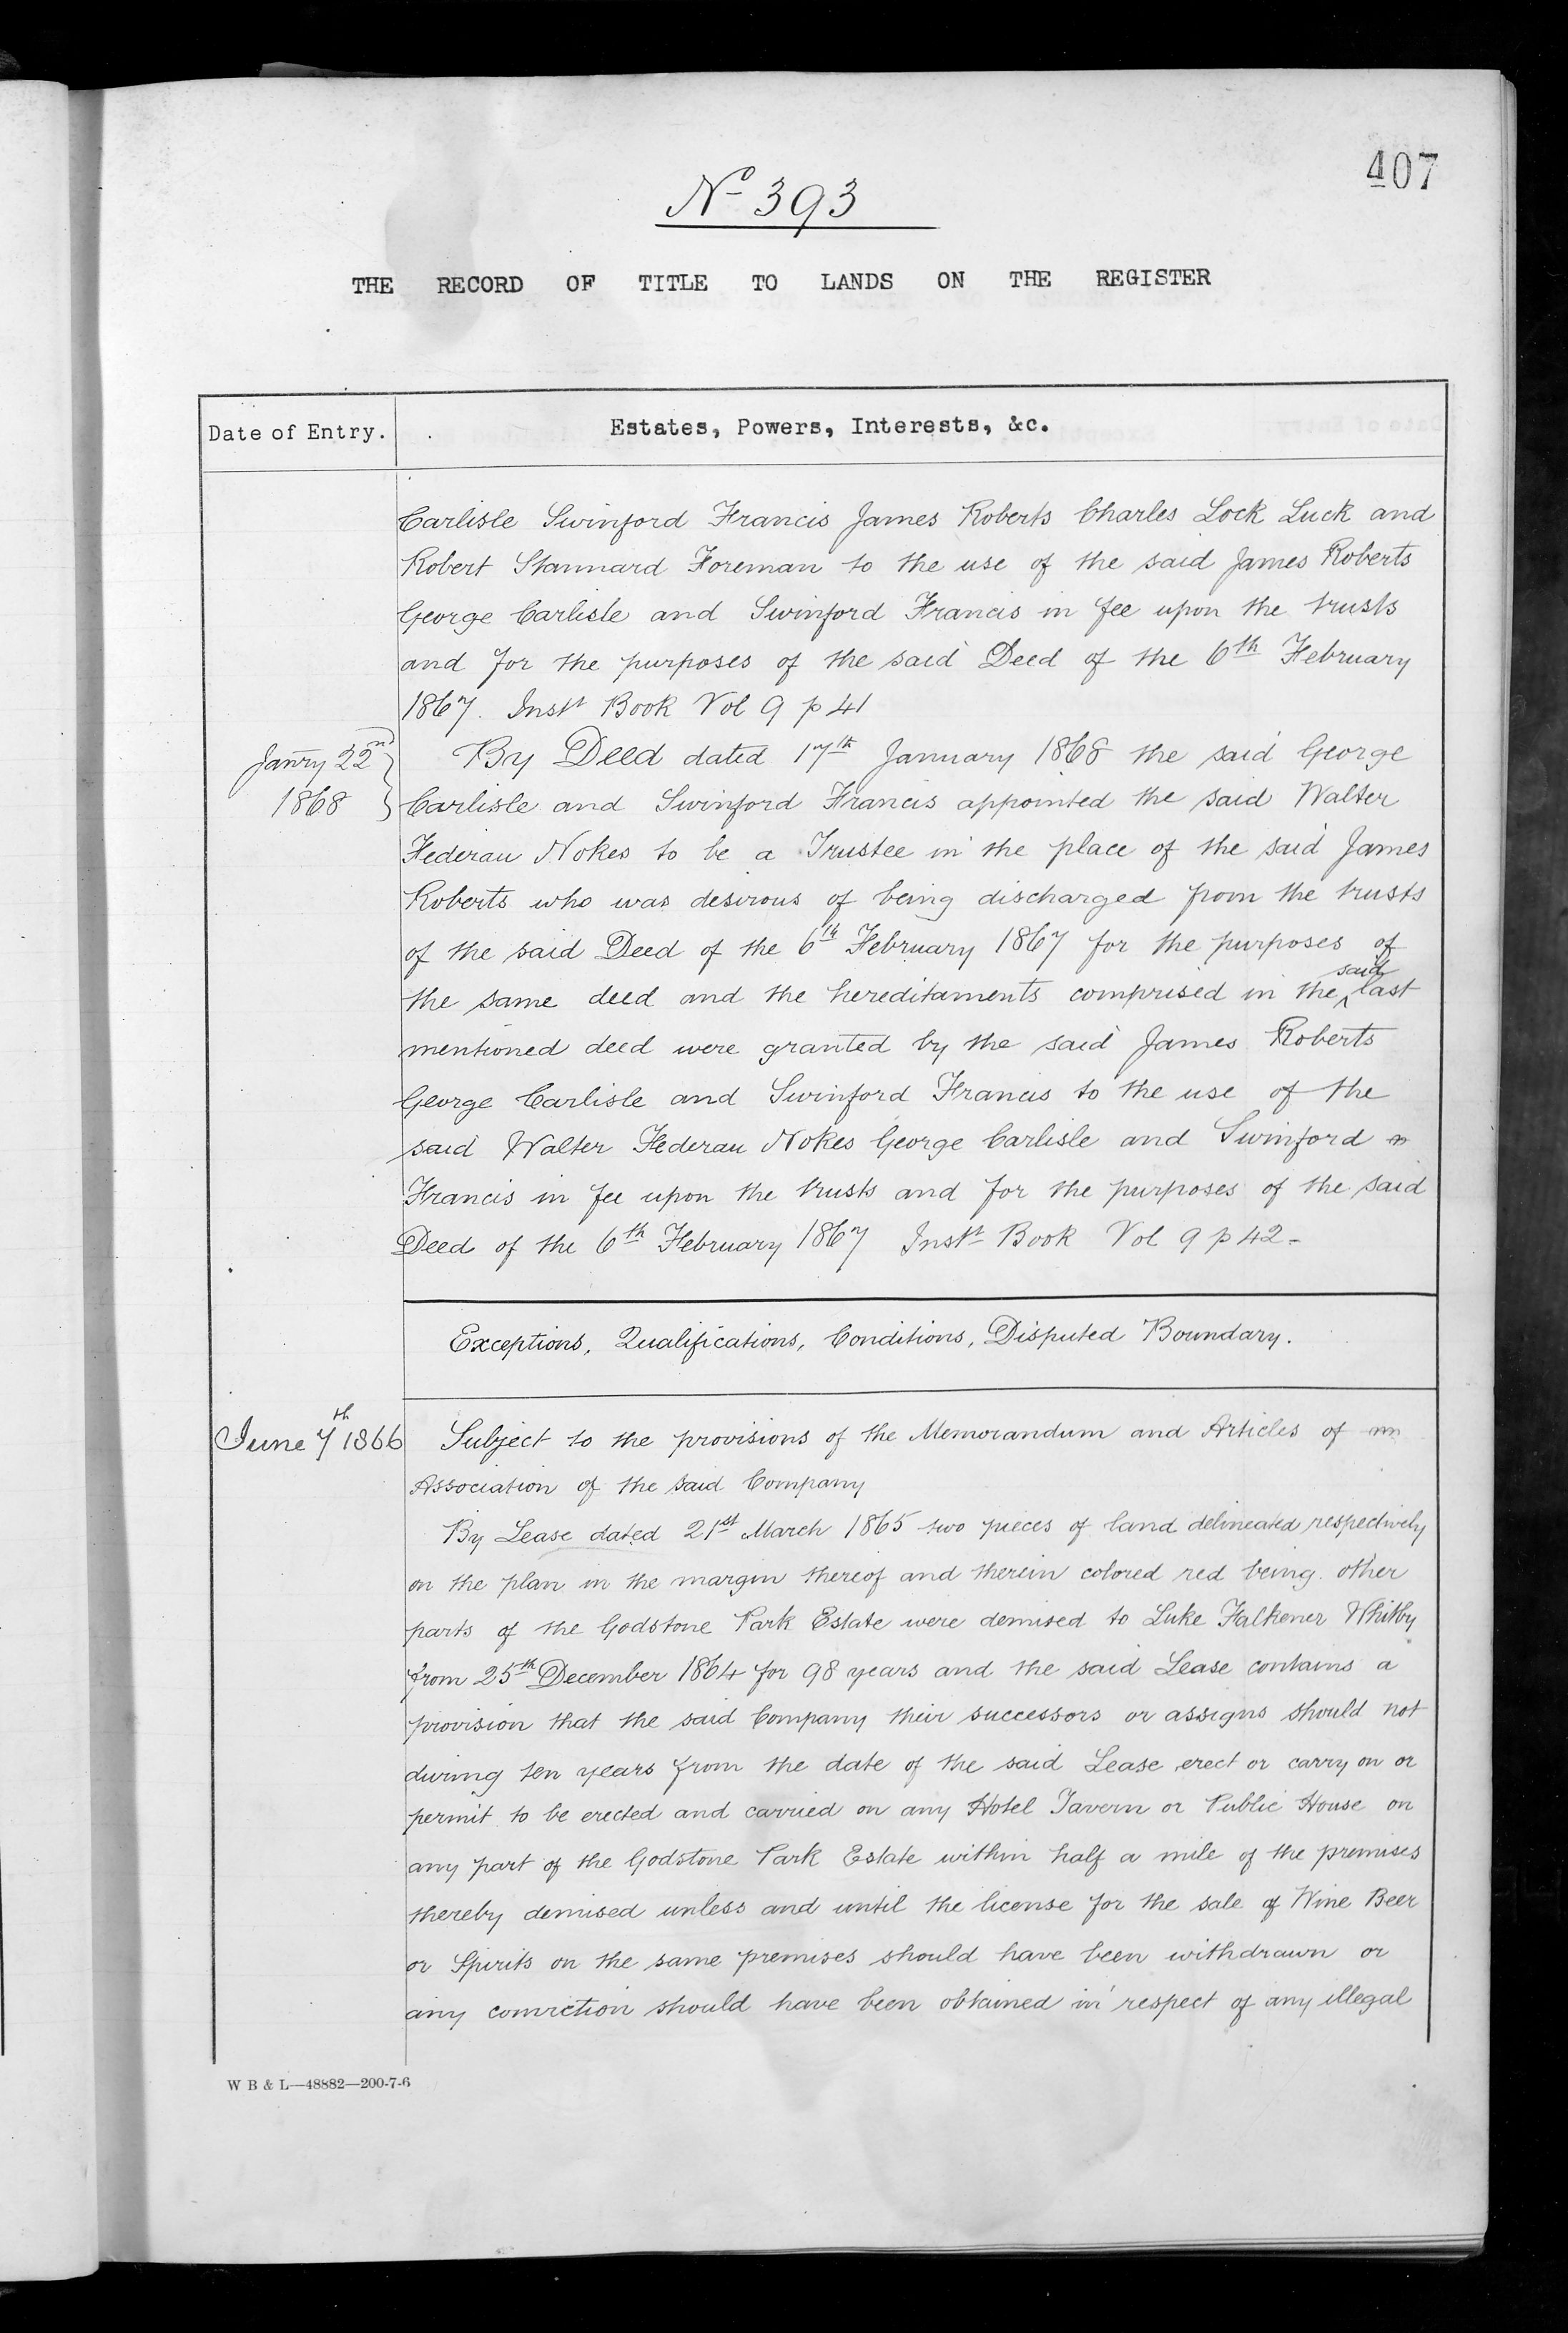 407
No 393
THE RECORD OF TITLE TO LANDS ON THE REGISTER
Date of Entry.
Estates, Powers, Interests, &c.
Carlisle Swinford Francis James Roberts Charles Lock Luck and
Robert Stannard Foreman to the use of the said James Roberts
George Carlisle and Swinford Francis in fee upon the trusts
and for the purposes of the said Deed of the 6th February
1867. Inst Book Vol 9 p 41
Janry 22nd
1868
By Deed dated 17th January 1868 the said George
Carlisle and Swinford Francis appointed the said Walter
Federau Nokes to be a Trustee in the place of the said James
Roberts who was desirous of being discharged from the trusts
of the said Deed of the 6th February 1867 for the purposes of
the same deed and the hereditaments comprised in the said last
mentioned deed were granted by the said James Roberts
George Carlisle and Swinford Francis to the use of the
said Walter Federau Nokes George Carlisle and Swinford
Francis in fee upon the trusts and for the purposes of the said
Deed of the 6th February 1867 Inst Book Vol 9 p 42-
Exceptions, Qualifications, Conditions, Disputed Boundary.
June 7th 1866
Subject to the provisions of the Memorandum and Articles of
Association of the said Company
By Lease dated 21st March 1865 two pieces of land delineated respectively
on the plan in the margin thereof and therein colored red being other
parts of the Godstone Park Estate were demised to Luke Falkener Whitby
from 25th December 1864 for 98 years and the said Lease contains a
provision that the said Company their successors or assigns should not
during ten years from the date of the said Lease erect or carry on or
permit to be erected and carried on any Hotel Tavern or Public House on
any part of the Godstone Park Estate within half a mile of the premises
thereby demised unless and until the license for the sale of Wine Beer
or Spirits on the same premises should have been withdrawn or
any conviction should have been obtained in respect of any illegal
W B & L—48882—200-7-6